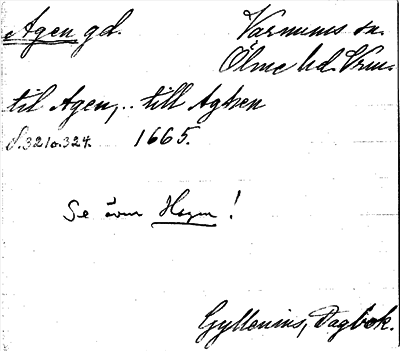 Agen gd. Varnums sn.
Ölme hd. Vrm.
til Agen,.. till Aghen
S. 321 o. 324. 1665.
Se även Hagen!
Gyllenius, Dagbok.